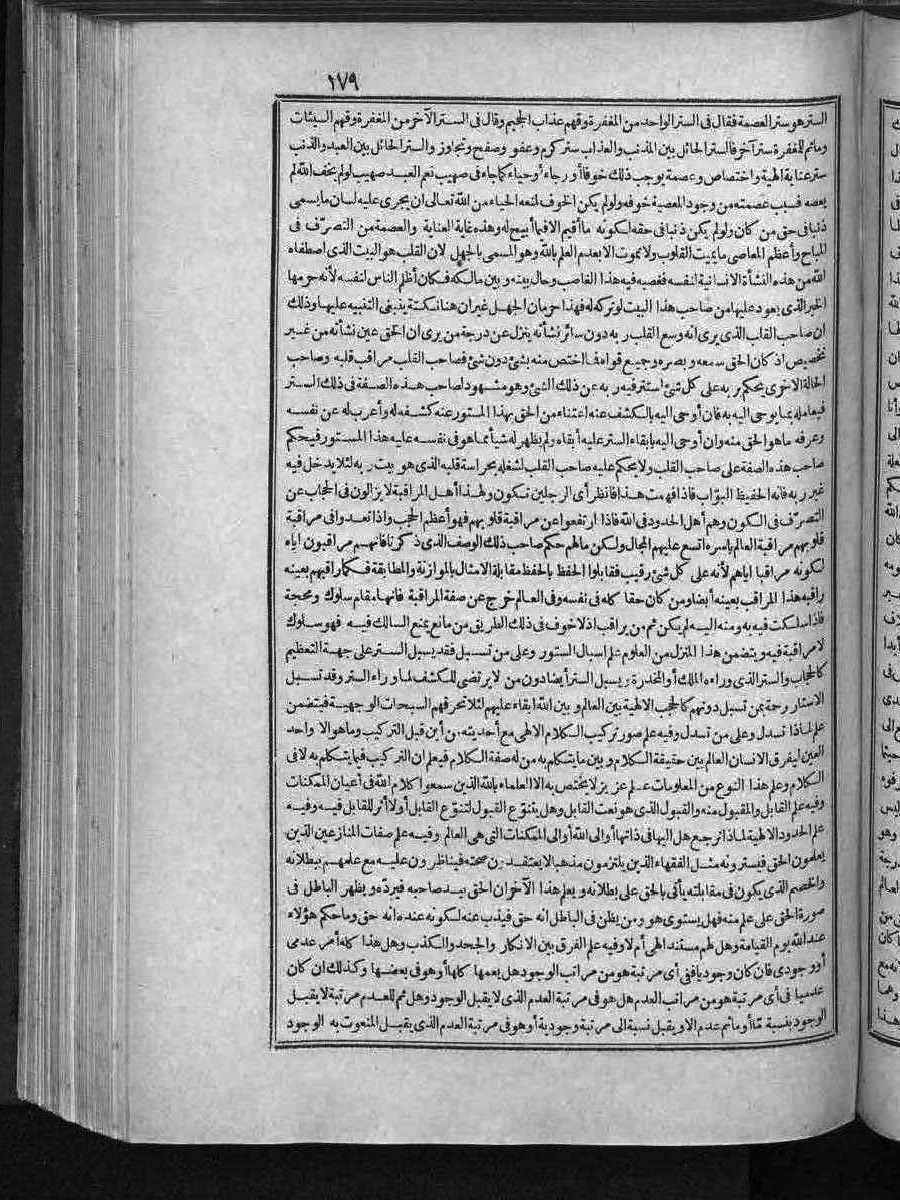 ١٧٩
الستر هو ستر العصمة فقال في الستر الواحد من المغفرة وقهم عذاب الجحيم وقال في الستر الآخر من المغفرة وقهم السيئات
وما ثم للمغفرة ستر آخر فالستر الحائل بين المذنب والعذاب ستر كرم وعفو وصفح وتجاوز والستر الحائل بين العبد والذنب
ستر عناية الهية واختصاص وعصمة يوجب ذلك خوفا أو رجاء أو حياء كما جاء في صهيب نعم العبد صهيب لو لم يخف الله لم
يعصه فسبب عصمته من وجود المعصية خوفه ولو لم يكن الخوف لمنعه الحياء من الله تعالى ان يجرى عليه لسان ما يسمى
ذنبا في حق من كان ولو لم يكن ذنبا في حقه لكونه ما أقيم الا فيما أبيح له وهذه غاية العناية والعصمة من التصرّف في
المباح وأعظم المعاصى ما يميت القلوب ولا تموت الا بعدم العلم بالله وهو المسمى بالجهل لان القلب هو البيت الذى اصطفاه
الله من هذه النشأة الانسانية لنفسه فغصبه فيه هذا الغاصب وحال بينه وبين مالكه فكان أظلم الناس لنفسه لأنه حرمها
الخير الذى يعود عليها من صاحب هذا البيت لو تركه له فهذا حرمان الجهل غير ان هنا نكتة ينبغى التنبيه عليها وذلك
ان صاحب القلب الذى يرى انه وسع القلب ربه دون سائر نشأته ينزل عن درجة من يرى ان الحق عين نشأته من غير
تخصيص اذ كان الحق سمعه وبصره وجميع قواه فما اختص منه بشئ دون شئ فصاحب القلب مراقب قلبه وصاحب
الحالة الاخرى يحكم بربه على كل شئ استتر فيه ربه عن ذلك الشئ وهو مشهود لصاحب هذه الصفة في ذلك الستر
فيعامله بما يوحى اليه به فان أوحى اليه بالكشف عنه اعتناء من الحق بهذا المستور عنه كشفه له وأعرب له عن نفسه
وعرفه ما هو الحق منه وان أوحى اليه بابقاء الستر عليه أبقاه ولم يظهر له شيأ مما هو في نفسه عليه هذا المستور فيحكم
صاحب هذه الصفة على صاحب القلب ولا يحكم عليه صاحب القلب لشغله بحراسة قلبه الذى هو بيت ربه لئلا يدخل فيه
غير ربه فانه الحفيظ البوّاب فاذا فهمت هذا فانظر أي الرجلين تكون ولهذا أهل المراقبة لا يزالون في الحجاب عن
التصرّف في الكون وهم أهل الحدود في الله فاذا ارتفعوا عن مراقبة قلوبهم فهو أعظم الحجب واذا تعدوا في مراقبة
قلوبهم مراقبة العالم بأسره اتسع عليهم المجال ولكن مالهم حكم صاحب ذلك الوصف الذى ذكرنا فانهم مراقبون اياه
لكونه مراقبا اياهم لأنه على كل شئ رقيب فقابلوا الحفظ بالحفظ مقابلة الامثال بالموازنة والمطابقة فكما راقبهم بعينه
راقبه هذا المراقب بعينه أيضا ومن كان حقا كله في نفسه وفي العالم خرج عن صفة المراقبة فانها مقام سلوك ومحجة
فاذا سلكت فيه به ومنه اليه لم يكن ثم من يراقب اذ لا خوف في ذلك الطريق من مانع يمنع السالك فيه فهو سلوك
لا مراقبة فيه ويتضمن هذا المنزل من العلوم علم اسبال الستور وعلى من تسبل فقد يسبل الستر على جهة التعظيم
كالحجاب والستر الذى وراءه الملك أو المخدرة ويسبل الستر أيضا دون من لا يرتضى للكشف لما وراء الستر وقد تسبل
الاستار رحمة بمن تسبل دونهم كالحجب الالهية بين العالم وبين الله ابقاء عليهم لئلا تحرقهم السبحات الوجهية فيتضمن
علم لماذا تسدل وعلى من تسدل وفيه علم صور تركيب الكلام الالهى مع أحديته من أين قبل التركيب وما هو الا واحد
العين ليفرق الانسان العالم بين حقيقة الكلام وبين ما يتكلم به من له صفة الكلام فيعلم ان التركيب فيما يتكلم به لا في
الكلام وعلم هذا النوع من المعلومات علم عزيز لا يختص به الا العلماء بالله الذين سمعوا كلام الله في أعيان الممكنات
وفيه علم القابل والمقبول منه والقبول الذى هو نعت القابل وهل يتنوّع القبول لتنوّع القابل أو لا أثر للقابل فيه وفيه
علم الحدود الالهية لماذا ترجع هل اليها في ذاتها أو الى الله أو الى الممكنات التى هي العالم وفيه علم صفات المنازعين الذين
يعلمون الحق فيسترونه مثل الفقهاء الذين يلتزمون مذهبا لا يعتقدون صحته فيناظرون عليه مع علمهم ببطلانه
والخصم الذى يكون في مقابلته يأتى بالحق على بطلانه ويعلم هذا الآخر ان الحق بيد صاحبه فيردّه ويظهر الباطل في
صورة الحق على علم منه فهل يستوى هو ومن يظن في الباطل انه حق فيذب عنه لكونه عنده انه حق وما حكم هؤلاء
عند الله يوم القيامة وهل لهم مستند الهى أم لا وفيه علم الفرق بين الانكار والجحد والكذب وهل هذا كله أمر عدمى
أو وجودى فان كان وجوديا ففى أي مرتبة هو من مراتب الوجود هل يعمها كلها أو هو في بعضها وكذلك ان كان
عدميا في أي مرتبة هو من مراتب العدم هل هو في مرتبة العدم الذى لا يقبل الوجود وهل ثم للعدم مرتبة لا يقبل
الوجود بنسبة مّا أو ما ثم عدم الا ويقبل نسبة الى مرتبة وجودية أو هو في مرتبة العدم الذى يقبل المنعوت به الوجود